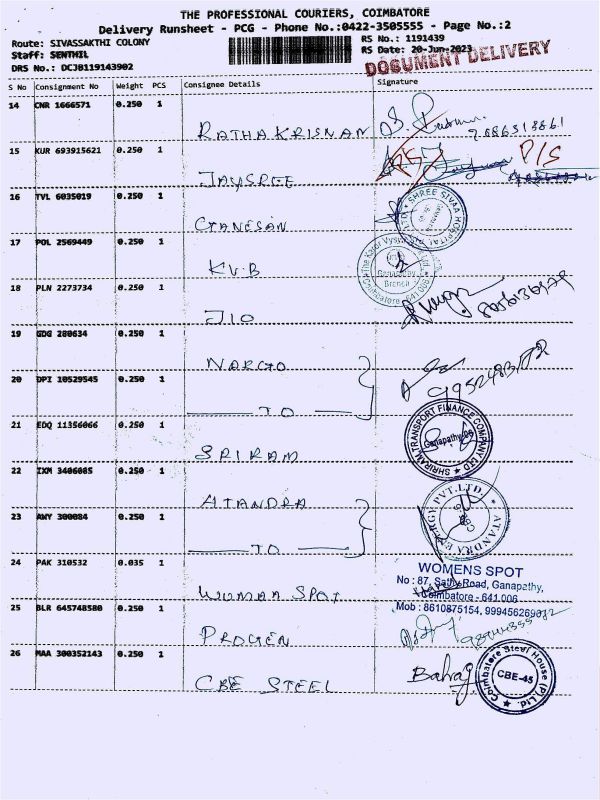 THE PROFESSIONAL COURIERS, COIMBATORE
Delivery Runsheet - PCG - Phone No.:0422-3505555 - Page No.:2
Route: SIVASSAKTHI COLONY
RS No.: 1191439
Staff: SENTHIL
RS Date: 20-Jun-2023
DRS No.: DCJB119143902
DOCUMENT DELIVERY
S No Consignment No Weight PCS Consignee Details Signature
14 CNR 1666571 0.250 1
RATHAKRISNAN
15 KUR 693915621 0.250 1
P/S
JAYSREE
16 TVL 6035019 0.250 1
SHREE SIVAA HOSPITAL
GANESAN
17 POL 2569449 0.250 1
The Karur Vysya
KVB
Ganapathy
Branch
Coimbatore - 641 006
18 PLN 2273734 0.250 1
JIO
19 GDG 280634 0.250 1
NARGO
20 DPI 10529545 0.250 1
TO
21 EDQ 11356066 0.250 1
SHRIRAM TRANSPORT FINANCE COMPANY LTD
Ganapathy
SRIRAM
22 IXM 3406085 0.250 1
ATANDRA
23 AWY 300084 0.250 1
ATANDRA ENERGY PVT.LTD.
TO
24 PAK 310532 0.035 1
WOMENS SPOT
No : 87, Sathy Road, Ganapathy,
Coimbatore - 641 006
WUMAA SPOT
Mob : 8610875154,
25 BLR 645748580 0.250 1
PROGEN
26 MAA 300352143 0.250 1
Coimbatore Steel House (P) Ltd.
CBE-45
CBE STEEL